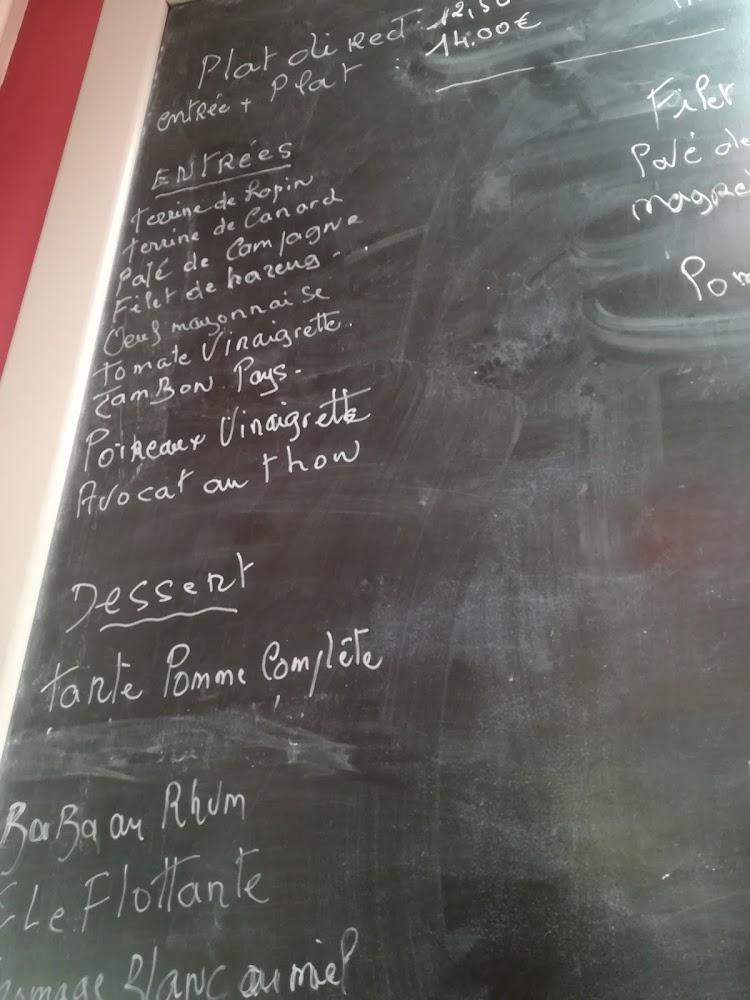 Plat direct: 12,50
entrée + Plat : 14.00€
ENTRÉES
terrine de Lapin
terrine de Canard
Paté de Campagne
Filet de hareng
Oeuf mayonnaise
tomate Vinaigrette.
JamBon Pays.
Poireaux Vinaigrette
Avocat au thon
Dessert
tarte Pomme Complête
BaBa au Rhum
ÎLe Flottante
romage Blanc au miel
Filet
Pavé de
magre
Pom